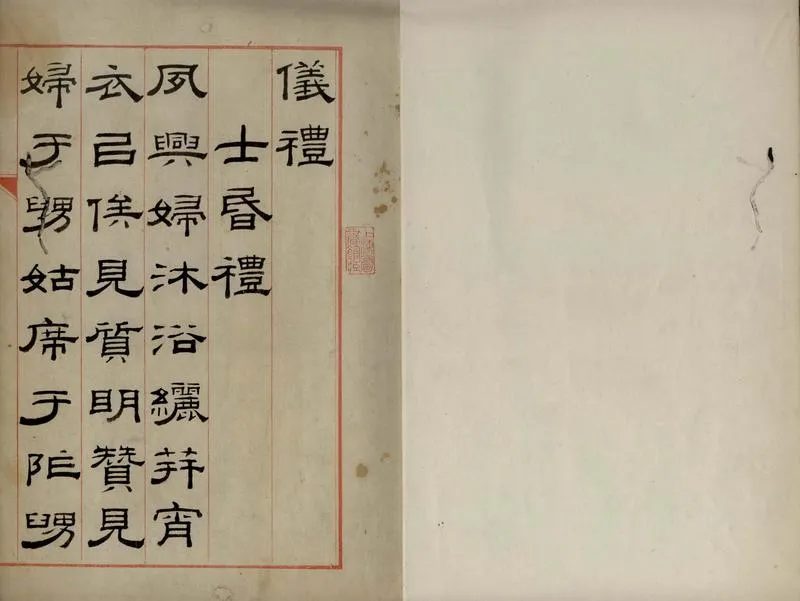 儀禮
士昏禮
夙興婦沐浴纚笄宵
衣㠯俟見質明贊見
婦于舅姑席于阼舅